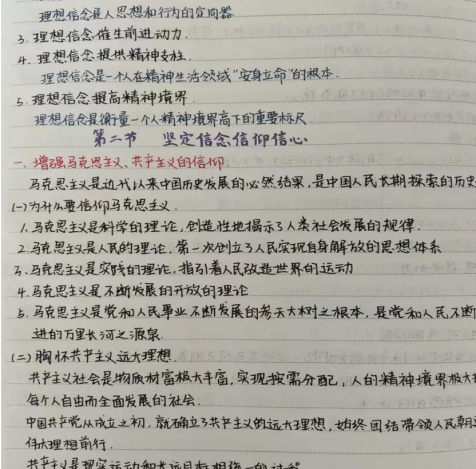 理想信念是人思想和行为的定向器
3. 理想信念催生前进动力.
4. 理想信念提供精神支柱.
理想信念是一个人在精神生活领域“安身立命”的根本.
5. 理想信念提高精神境界.
理想信念是衡量一个人精神境界高下的重要标尺.
第二节 坚定信念信仰信心
一、增强马克思主义、共产主义的信仰.
马克思主义是近代以来中国历史发展的必然结果,是中国人民长期探索的历史
(一)为什么要信仰马克思主义.
1. 马克思主义是科学的理论,创造性地揭示了人类社会发展的规律.
2. 马克思主义是人民的理论,第一次创立了人民实现自身解放的思想体系
3. 马克思主义是实践的理论,指引着人民改造世界的运动
4. 马克思主义是不断发展的开放的理论
5. 马克思主义是党和人民事业不断发展的参天大树之根本,是党和人民不断
进的万里长河之源泉.
(二)胸怀共产主义远大理想.
共产主义社会是物质财富极大丰富,实现按需分配,人的精神境界极大
每个人自由而全面发展的社会.
中国共产党从成立之初,就确立了共产主义的远大理想,始终团结带领人民朝
伟大理想前行.
共产主义是现实运动和长远目标相统一的过程